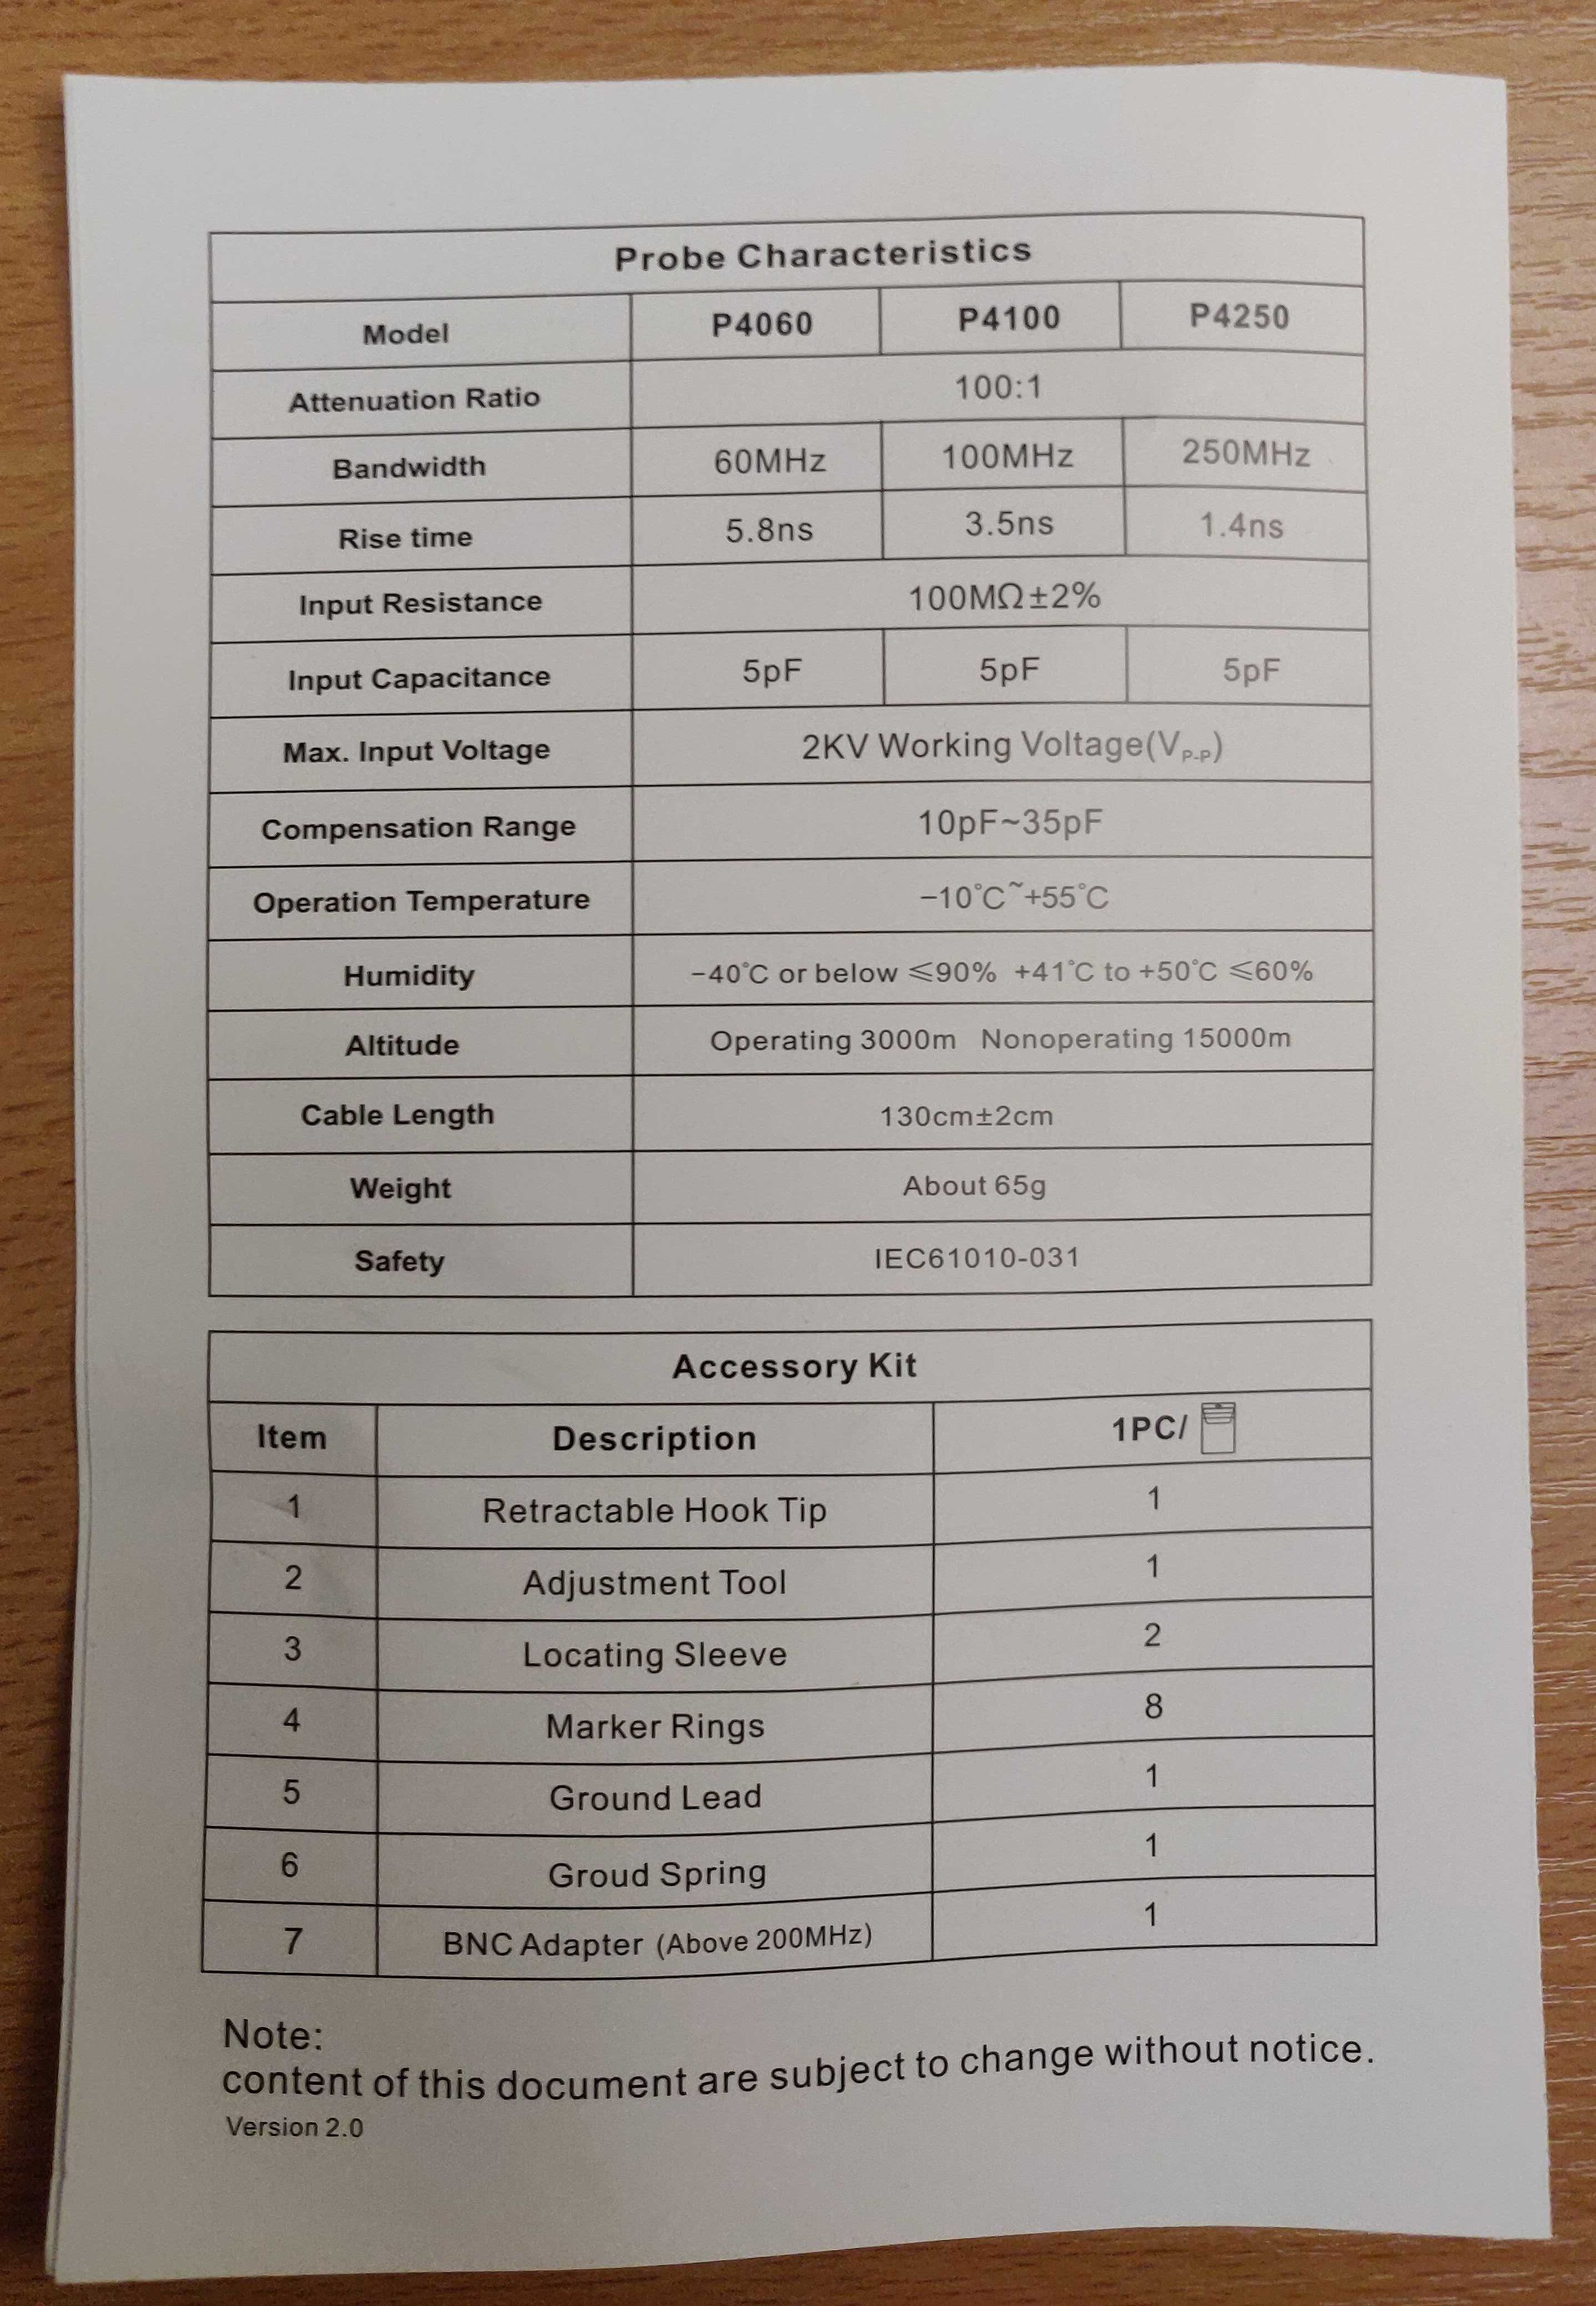 Probe Characteristics
Model P4060 P4100 P4250
Attenuation Ratio 100:1
Bandwidth 60MHz 100MHz 250MHz
Rise time 5.8ns 3.5ns 1.4ns
Input Resistance 100MΩ±2%
Input Capacitance 5pF 5pF 5pF
Max. Input Voltage 2KV Working Voltage(VP-P)
Compensation Range 10pF~35pF
Operation Temperature −10℃~+55℃
Humidity −40℃ or below ≤90% +41℃ to +50℃ ≤60%
Altitude Operating 3000m Nonoperating 15000m
Cable Length 130cm±2cm
Weight About 65g
Safety IEC61010-031
Accessory Kit
Item Description 1PC/
1 Retractable Hook Tip 1
2 Adjustment Tool 1
3 Locating Sleeve 2
4 Marker Rings 8
5 Ground Lead 1
6 Groud Spring 1
7 BNC Adapter (Above 200MHz) 1
Note:
content of this document are subject to change without notice.
Version 2.0